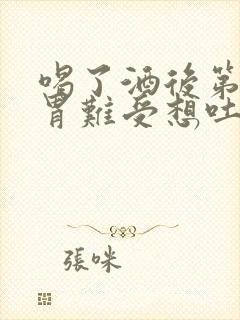 喝了酒後第
胃難受想吐
張咪